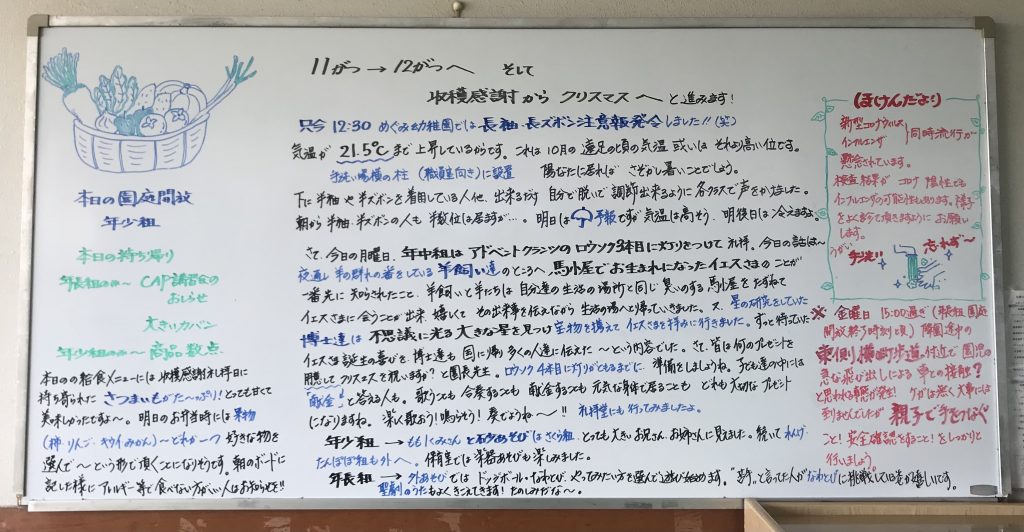 11がつ→12がつへ そして
収穫感謝から クリスマスへ と進みます!
只今 12:30 めぐみ幼稚園では 長袖・長ズボン注意報発令しました!!(笑)
気温が 21.5℃まで上昇しているからです。これは10月の遠足の頃の気温 或いは それより高い位です。
手洗い場横の柱(職員室向き)に設置 陽なたに居れば さぞかし暑いことでしょう。
下に半袖や半ズボンを着用している人は、出来るだけ 自分で脱いで調節出来るように各クラスで声をかけました。
朝から半袖、半ズボンの人も 半数位は居ますが…。明日は 予報ですが気温は高そう。明後日は冷えますよ。
さて、今日の月曜日、年中組は アドベントクランツのロウソク3本目に灯りをつけて礼拝。今日のお話は〜
夜通し羊の群れの番をしている 羊飼い達のところへ、馬小屋でお生まれになったイエスさまのことが
一番先に知らされたこと、羊飼いと羊たちは自分達の生活の場所と同じ匂いのする馬小屋をたずねて
イエスさまに会うことが出来 嬉しくて その出来事を伝えながら 生活の場へと帰っていきました。又、星の研究をしていた
博士達は 不思議に光る大きな星を見つけ 宝物を携えて イエスさまを拝みに行きました。ずっと待っていた
イエスさま誕生の喜びを、博士達も 国に帰り多くの人達に伝えた〜という内容でした。さて、皆は何のプレゼントを
用意して クリスマスを祝いますか?と園長先生。ロウソク4本目に灯りがともるまでに、準備をしましょうね。子ども達の中には
"献金"と答える人も。歌うことも 合奏することも 献金することも 元気な身体で居ることも どれも大切なプレゼント
になりますね。楽しく歌おう!鳴らそう!奏でよう〜!! 礼拝堂にも行ってみましたよ。
年少組 → さくら組。とっても大きいお兄さん、お姉さんに見えました。続いて れんげ・
たんぽぽ組も外へ。保育室では楽器あそびも楽しみました。
年長組 → 外あそびでは ドッジボール・なわとび、やってみたい方を選んで遊び始めます。
聖劇のうたもよくきこえてきます!たのしみだな〜。 と言ってた人がなわとびに挑戦している姿が嬉しいです。
本日の園庭開放
年少組
本日の持ち帰り
年長組のみ〜 CAP講習会の
おしらせ
大きいカバン
年少組のみ〜 商品数点
本日の給食メニューには 収穫感謝礼拝日に
持ち寄られた さつまいもがた〜っぷり!とっても甘くて
美味しかったですよ〜。明日のお弁当時には果物
(柿・りんご・キウイ・みかん)〜どれか一つ 好きな物を
選んで〜という形で頂くことになりそうです。朝のボードに
記した様に アレルギー等で食べない方がいい人はお知らせを!!
ほけんだより
新型コロナウィルス
インフルエンザ
同時流行が
懸念されています。
検査結果が コロナ陰性でも
インフルエンザの可能性もあります。様子
をよくみて頂きますように お願い
します。
うがい
手洗い
忘れず〜
※ 金曜日 15:00過ぎ(年長組 園庭
開放終了時刻頃)降園途中の
東側 横断歩道付近で 園児の
急な飛び出しによる 車との接触?
と思われる事態が発生! ケガは無く大事には
到りませんでしたが 親子で手をつなぐ
こと!安全確認をすること!をしっかりと
行いましょう